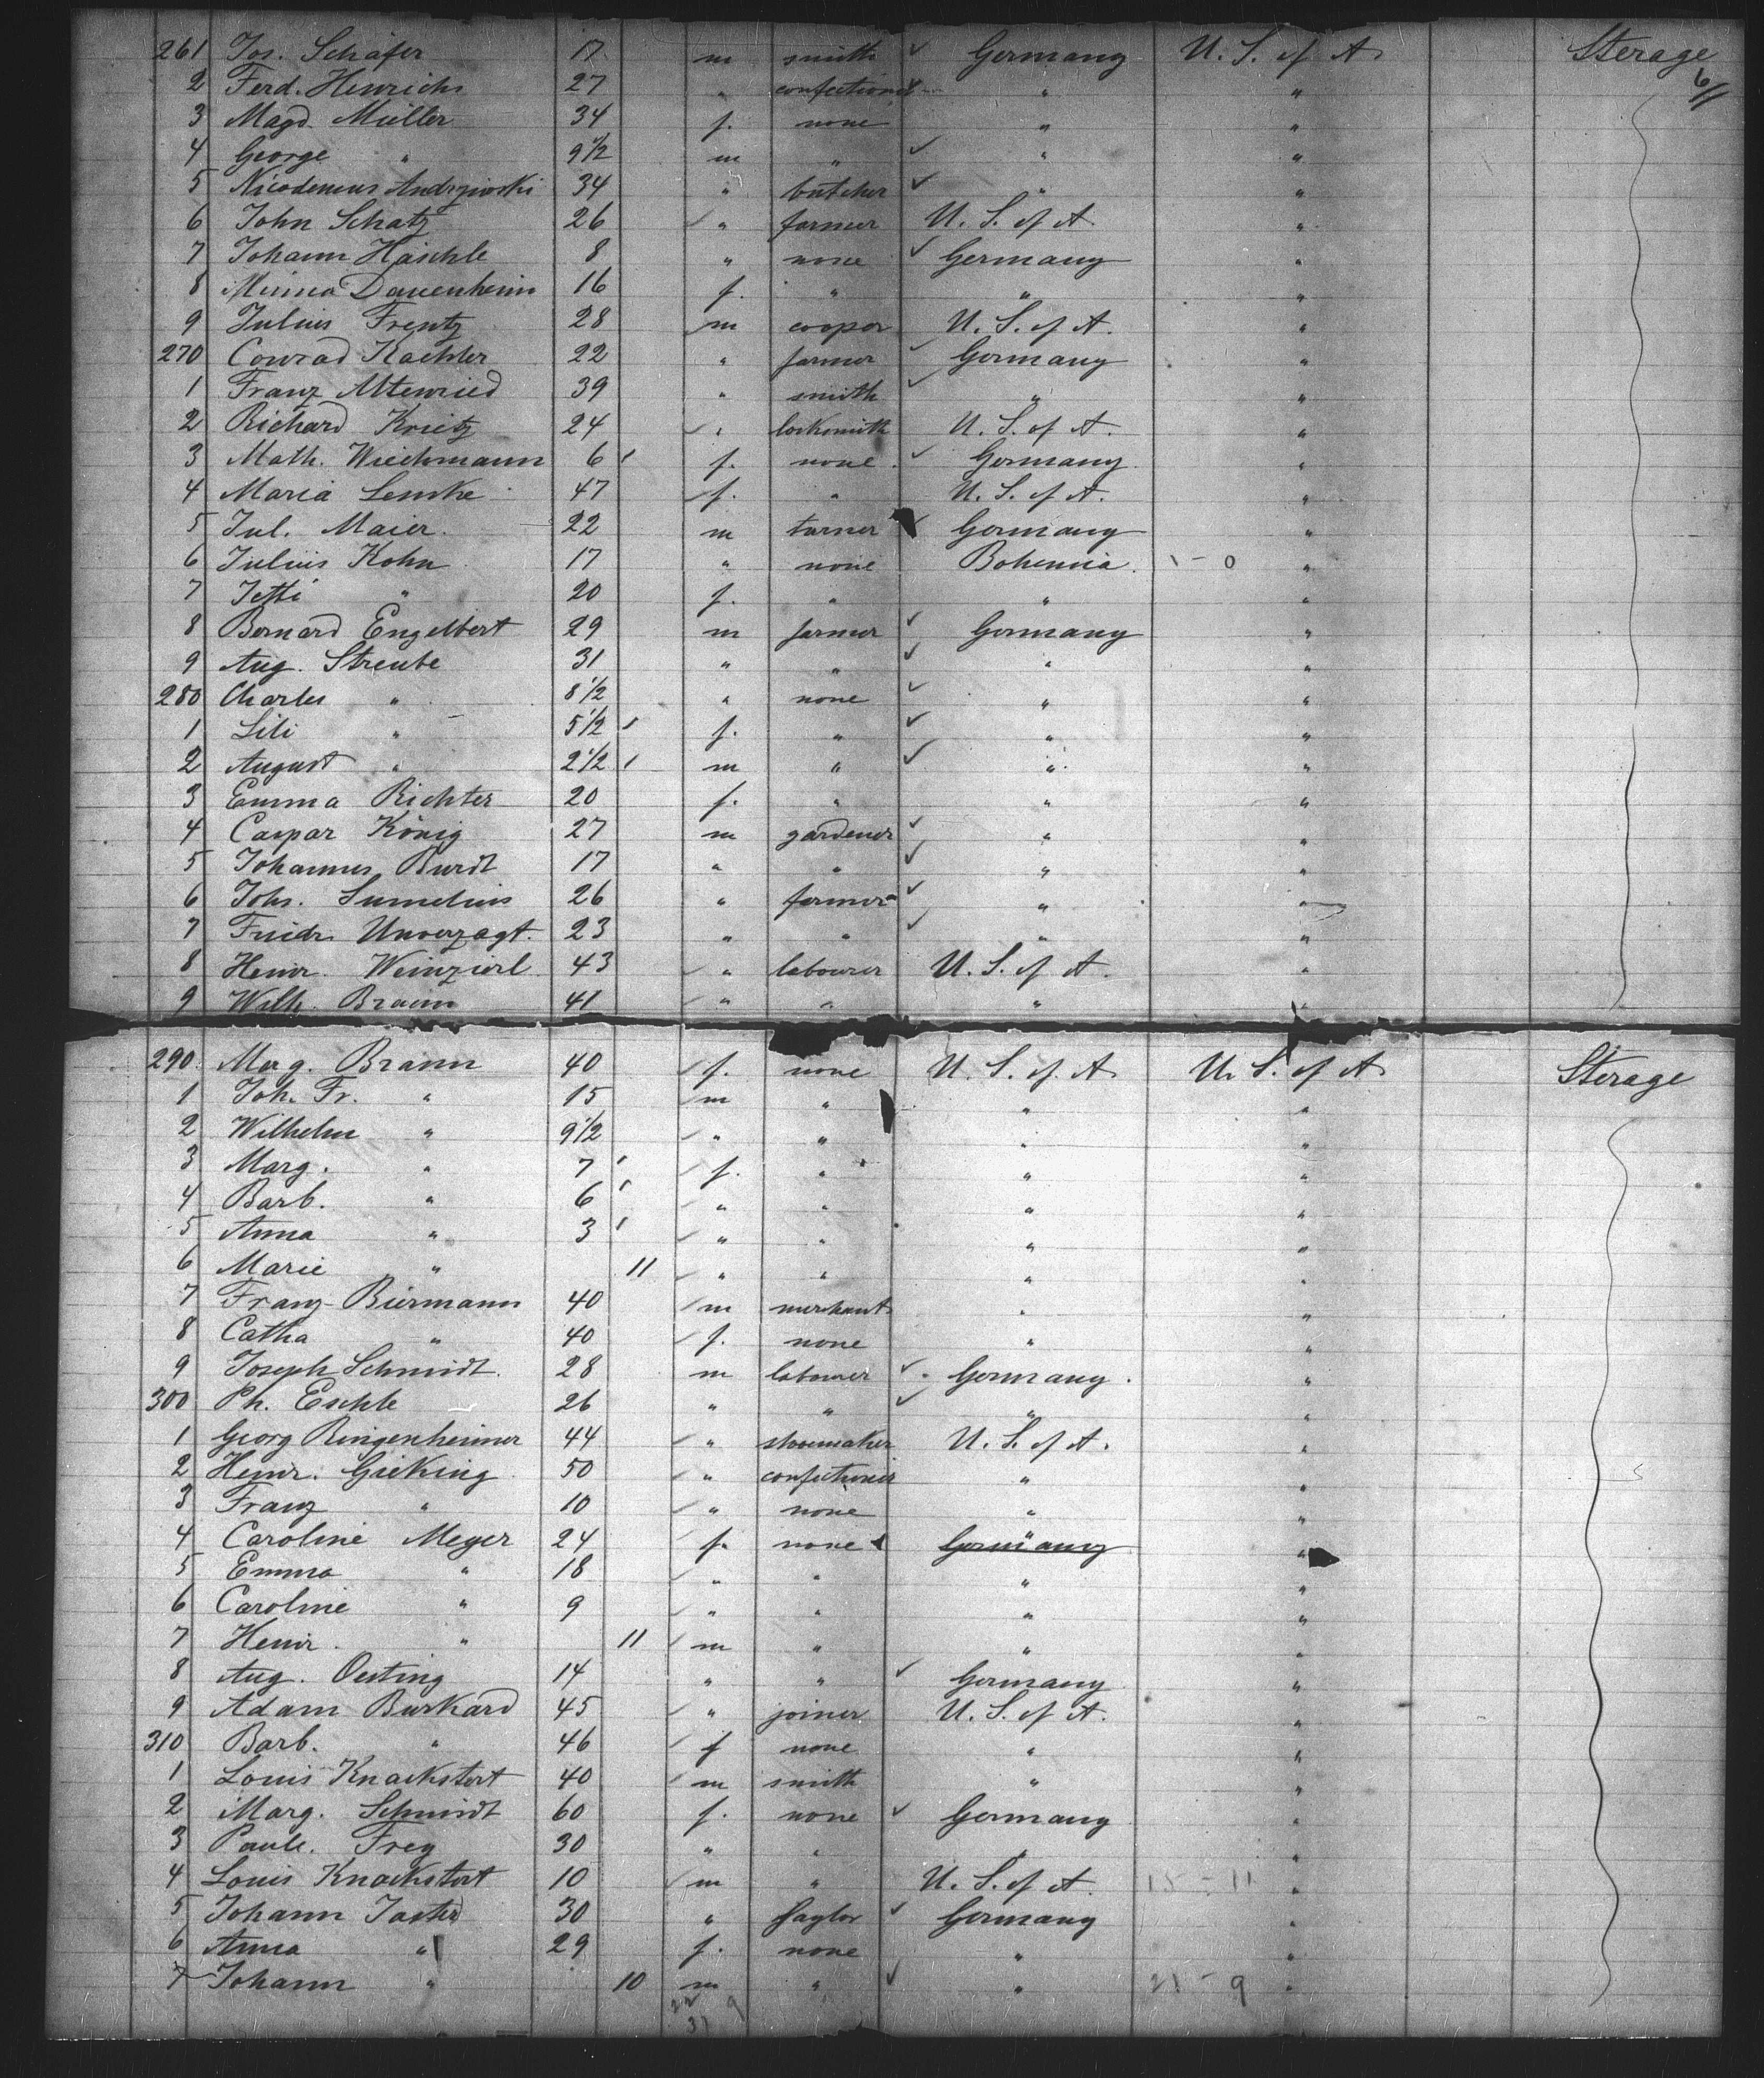 261 Jos. Schäfer 17 m smith ✓ Germany U. S. of A. Sterage
2 Ferd. Henrichs 27 " confectioner " " 6/
3 Magd. Müller 34 f. none " "
4 George " 9 1/2 m " ✓ " "
5 Nicodemus Andrzivski 34 " butcher ✓ " "
6 John Schatz 26 " farmer U. S. of A. "
7 Johann Häschle 8 " none ✓ Germany "
8 Minna Dauenheim 16 f. " " "
9 Julius Frentz 28 m cooper U. S. of A. "
270 Conrad Kaehler 22 " farmer ✓ Germany "
1 Franz Altenried 39 " smith ✓ " "
2 Richard Krietz 24 " locksmith U. S. of A. "
3 Math. Wiechmann 6 f. none ✓ Germany "
4 Maria Lemke 47 f. " U. S. of A. "
5 Jul. Maier 22 m turner ✓ Germany "
6 Julius Kohn 17 " none Bohemia 1 - 0 "
7 Jetti " 20 f. " " "
8 Bernard Engelbert 29 m farmer ✓ Germany "
9 Aug. Streube 31 " " ✓ " "
280 Charles " 8 1/2 " none ✓ " "
1 Lili " 5 1/2 f. " ✓ " "
2 August " 2 1/2 m " ✓ " "
3 Emma Richter 20 f. " " "
4 Caspar König 27 m gardener ✓ " "
5 Johannes Burdt 17 " " ✓ " "
6 Johs. Sumelius 26 " farmer ✓ " "
7 Friedr. Unverzagt. 23 " " ✓ " "
8 Heinr. Weinzierl 43 " labourer U. S. of A. "
9 Wilh. Braun 41 " " " "
290 Marg. Braun 40 f. none U. S. of A. U. S. of A. Sterage
1 Joh. Fr. " 15 m " " "
2 Wilhelm " 9 1/2 " " " "
3 Marg. " 7 f. " " "
4 Barb. " 6 " " " "
5 Anna " 3 " " " "
6 Marie " 11 " " " "
7 Franz Biermann 40 m merchant " "
8 Catha " 40 f. none " "
9 Joseph Schmidt 28 m labourer ✓ Germany "
300 Ph. Eschle 26 " " ✓ " "
1 Georg Ringenheimer 44 " shoemaker U. S. of A. "
2 Heinr. Gieking 50 " confectioner " "
3 Franz " 10 " none " "
4 Caroline Meyer 24 f. none Germany "
5 Emma " 18 " " " "
6 Caroline " 9 " " " "
7 Heinr. " 11 m " " "
8 Aug. Oesting 14 " " ✓ Germany "
9 Adam Burkard 45 " joiner U. S. of A. "
310 Barb. " 46 f none " "
1 Louis Knackstert 40 m smith " "
2 Marg. Schmidt 60 f. none ✓ Germany "
3 Paule. Frey 30 " " " "
4 Louis Knackstert 10 m " U. S. of A. 15 - 11 "
5 Johann Jaster 30 " taylor ✓ Germany "
6 Anna " 29 f. none " "
7 Johann " 10 m " ✓ " 21 - 9 "
22 9
31